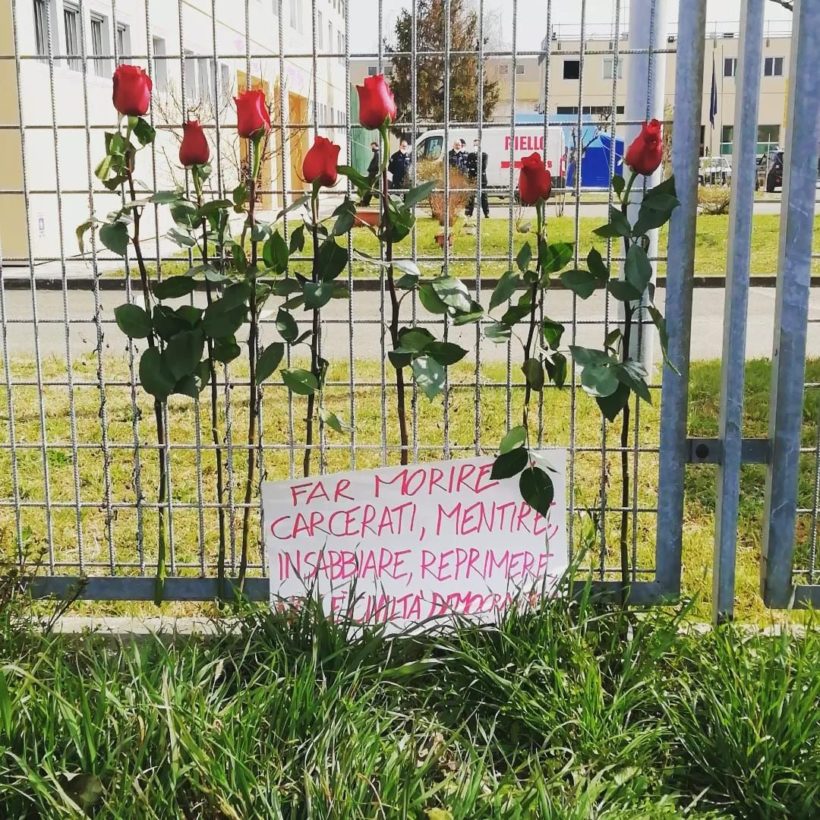 RIELLO
FAR MORIRE
CARCERATI, MENTIRE,
INSABBIARE, REPRIMERE,
È CIVILTÀ